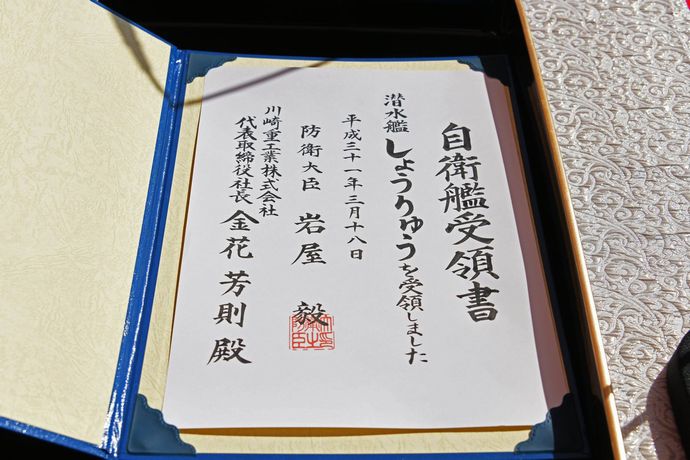 自衛艦受領書
潜水艦 しょうりゅうを受領しました
平成三十一年三月十八日
防衛大臣 岩屋 毅
川崎重工業株式会社
代表取締役社長 金花 芳則 殿